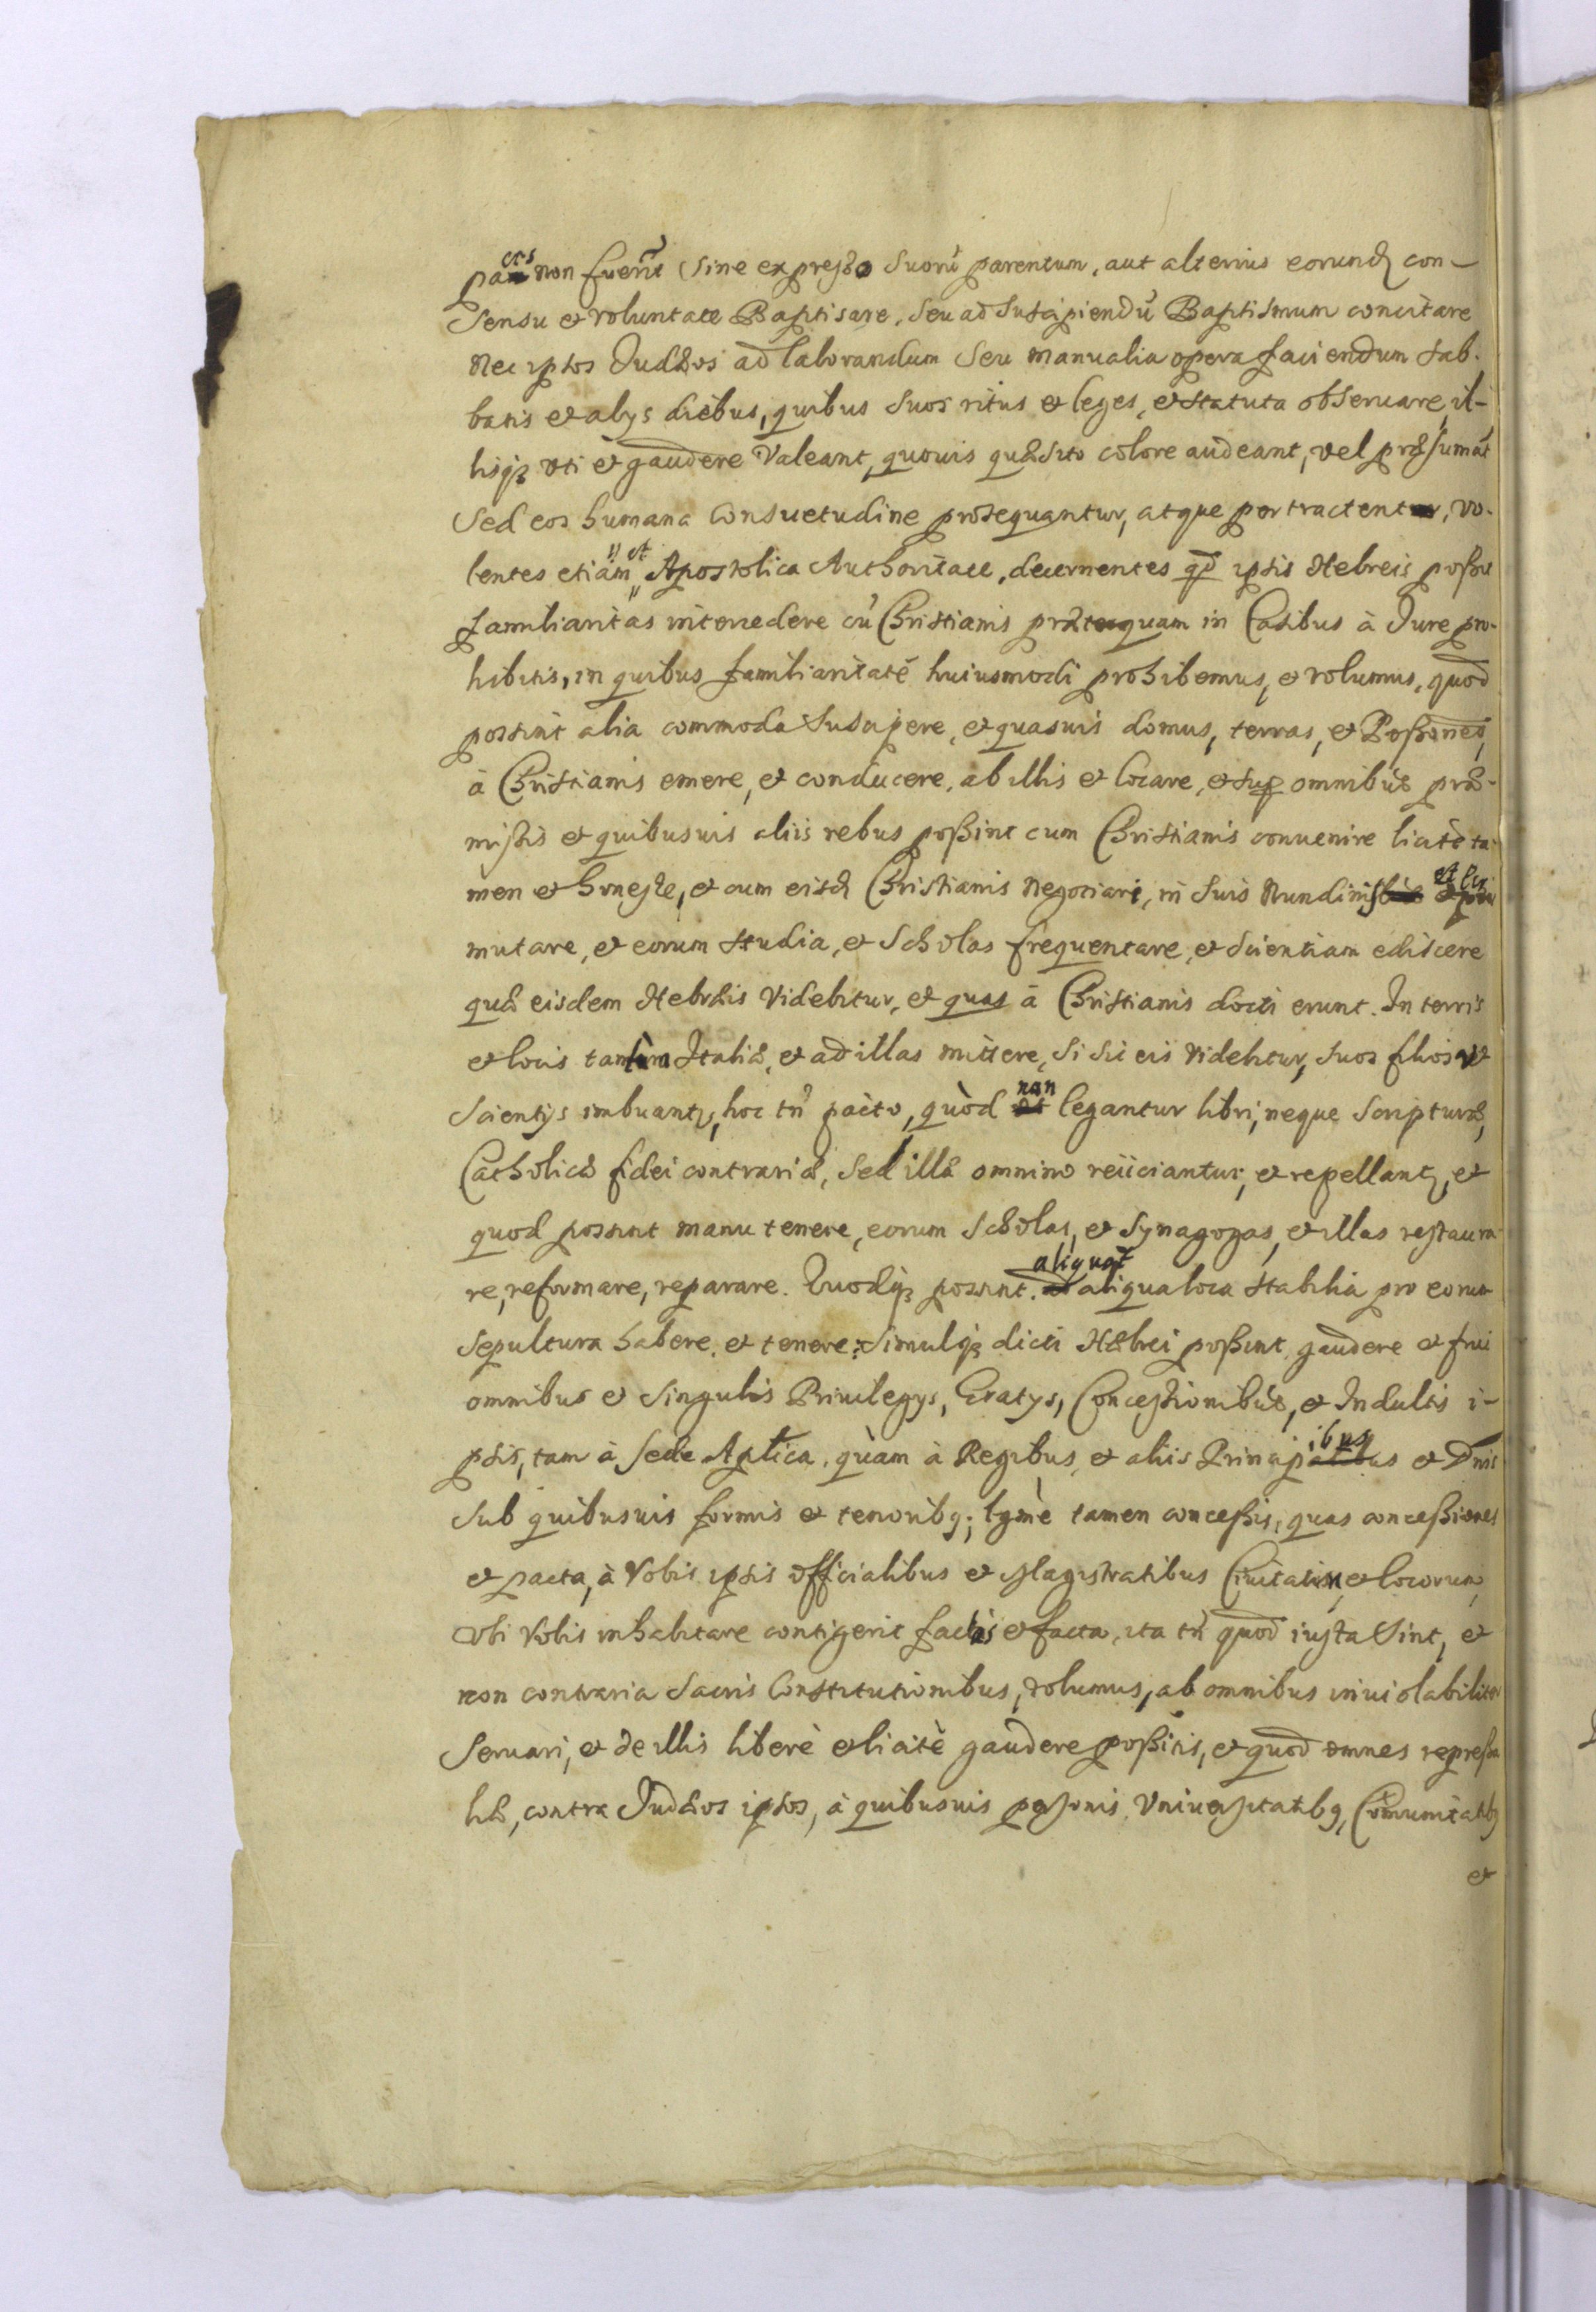 pacis non fuerĩt sine expresso suorũ parentum, aut alterius eorund con-
sensu et voluntate Baptisare, seu ad suscipiendũ Baptismum concitare
Nec ipsos Judæos ad laborandum seu manualia opera faciendum sab-
batis et alys diebus, quibus suos ritus et leges, et statuta obseruare, il-
lisq; vti et gaudere Valeant, quouis quæsito colore audeant, vel præsumãt
Sed eos humana Consuetudine prosequantur, atque pertractentur, vo-
lentes etiam et Apostolica Authoritate, decernentes qd ipsis Hebreis possit
familiaritas intercedere cũ Christianis præterquam in Casibus à Jure pro-
hibitis, in quibus familiaritatẽ huiusmodi prohibemus, et volumus, quod
possint alia commoda suscipere, et quasuis domus, terras, et Possones,
à Christianis emere, et conducere, ab illis et locare, et sup omnibus præ-
missis et quibusuis aliis rebus possint cum Christianis conuenire licitè ta-
men et honeste, et cum eisd Christianis Negociari, in suis Nundinis
mutare, et eorum studia, et Scholas frequentare, et scientiam ediscere
quæ eisdem Hebræis Videbitur, et quas à Christianis docti erunt. In terris
et locis tantùm Italiæ, et ad illas mittere, si sic eis videbitur, suos filios vt
scientys imbuant, hoc tñ pacto, quòd non legantur libri, neque Scripturæ,
Catholicæ fidei contrariæ, sed illæ omnino reiiciantur, et repellant, et
quod possint manu tenere, eorum Scholas, et Synagogas, et illas restaura-
re, reformare, reparare. Quodq; possint. aliquot aliqua loca stabilia pro eorum
sepultura habere, et tenere; Simulq; dicti Hæbrei possint, gaudere et frui
omnibus et singulis Priuilegys, Gratys, Concessionibus, et Indultis i-
psis, tam à sede Aplica, quàm à Regibus, et aliis Principibus et Dnis
sub quibusuis formis et tenorib9; lgmè tamen concessis, quas concessiones
et pacta, à Vobis ipsis officialibus et Magistratibus Ciuitatum, et locorum,
Vbi Vobis inhabitare contigerit factas et facta, ita tñ quod iusta sint, et
non contraria sacris Constitutionibus, volumus, ab omnibus inuiolabiliter
seruari, et de illis liberè et licitè gaudere possitis, et quod omnes repressa
liæ, contra Judæos ipsos, à quibusuis personis, Vniuersitatib9, Comunitatib9
et